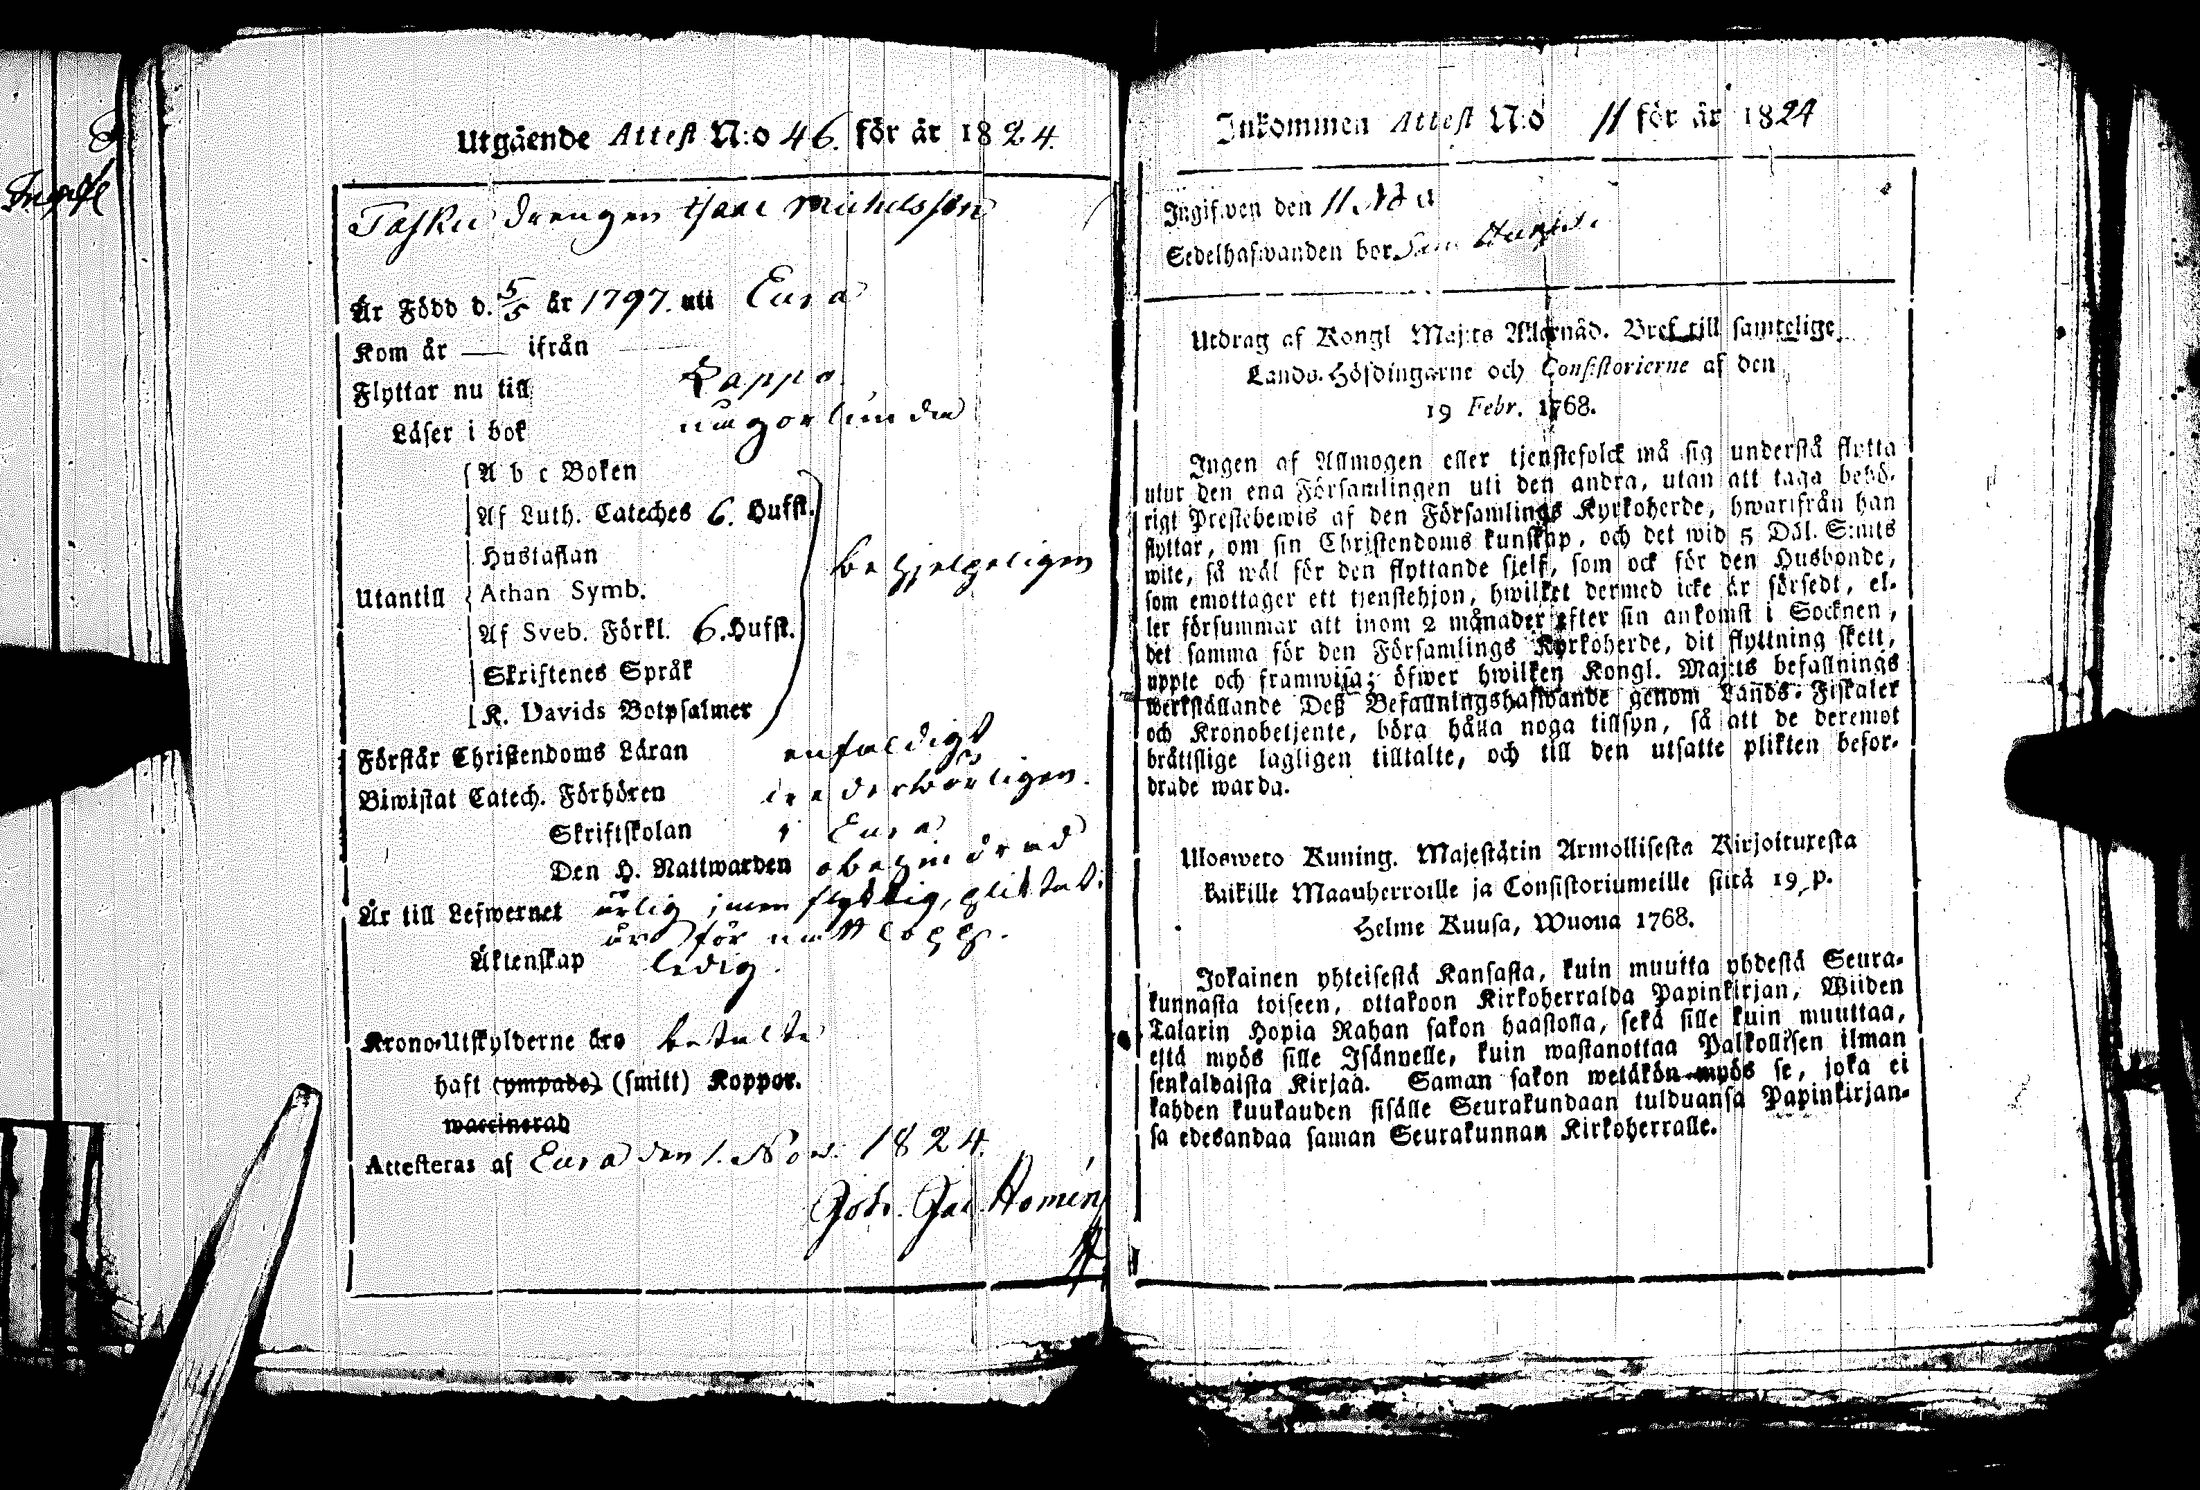 Utgående Attest N:o 46. för år 1824.
Tasku drengen Isaac Michelsson
Är Född d. 5/5 år 1797. uti Eura
Kom år — ifrån —
Flyttar nu till Lappo
Läser i bok någorlunda
A b c Boken
Af Luth. Cateches 6. Hufst.
Hustaflan
behjelpeligen
Utantill Athan Symb.
Af Sveb. Förkl. 6. Hufst.
Skriftenes Språk
K. Davids Botpsalmer
Förstår Christendoms Läran enfaldigt
Biwistat Catech. Förhören
Skriftskolan i Eura
Den H. Nattwarden obehindrad
Är till Lefwernet ärlig, men
Äktenskap ledig.
Krono-Utskylderne äro betalte
haft (ympade) (smitt) Koppor.
waccinerad
Attesteras af Eura den 1. Nov. 1824.
Joh. Jac. Homén
Inkommen Attest N:o 11 för år 1824
Ingifwen den 11
Sedelhafwanden bor
Utdrag af Kongl Maj:ts Allernåd. Bref till samtelige
Lands-Höfdingarne och Consistorierne af den
19 Febr. 1768.
Ingen af Allmogen eller tjenstefolck må sig understå flytta
utur den ena Församlingen uti den andra, utan att taga behö-
rigt Prestebewis af den Församlings Kyrkoherde, hwarifrån han
flyttar, om sin Christendoms kunskap, och det wid 5 Dal. S:mts
wite, så wäl för den flyttande sjelf, som ock för den Husbonde,
som emottager ett tjenstehjon, hwilket dermed icke är försedt, el-
ler försummar att inom 2 månader efter sin ankomst i Socknen,
det samma för den Församlings Kyrkoherde, dit flyttning skett,
uppte och framwisa; öfwer hwilken Kongl. Maj:ts befallnings
werkställande Deß Befallningshafwande genom Lands-Fiskaler
och Kronobetjente, böra hålla noga tillsyn, så att de deremot
bråttslige lagligen tilltalte, och till den utsatte plikten befor-
drade warda.
Ulosweto Kuning. Majestätin Armollisesta Kirjoituxesta
kaikille Maanherroille ja Consistoriumeille siitä 19 p.
Helme Kuusa, Wuona 1768.
Jokainen yhteisestä Kansasta, kuin muutta yhdestä Seura-
kunnasta toiseen, ottakoon Kirkoherralda Papinkirjan, Wiiden
Talarin Hopia Rahan sakon haastolla, sekä sille kuin muuttaa,
että myös sille Isännelle, kuin wastanottaa Palkollisen ilman
senkaldaista Kirjaa. Saman sakon wetäkön myös se, joka ei
kahden kuukauden sisälle Seurakundaan tulduansa Papinkirjan-
sa edesandaa saman Seurakunnan Kirkoherralle.